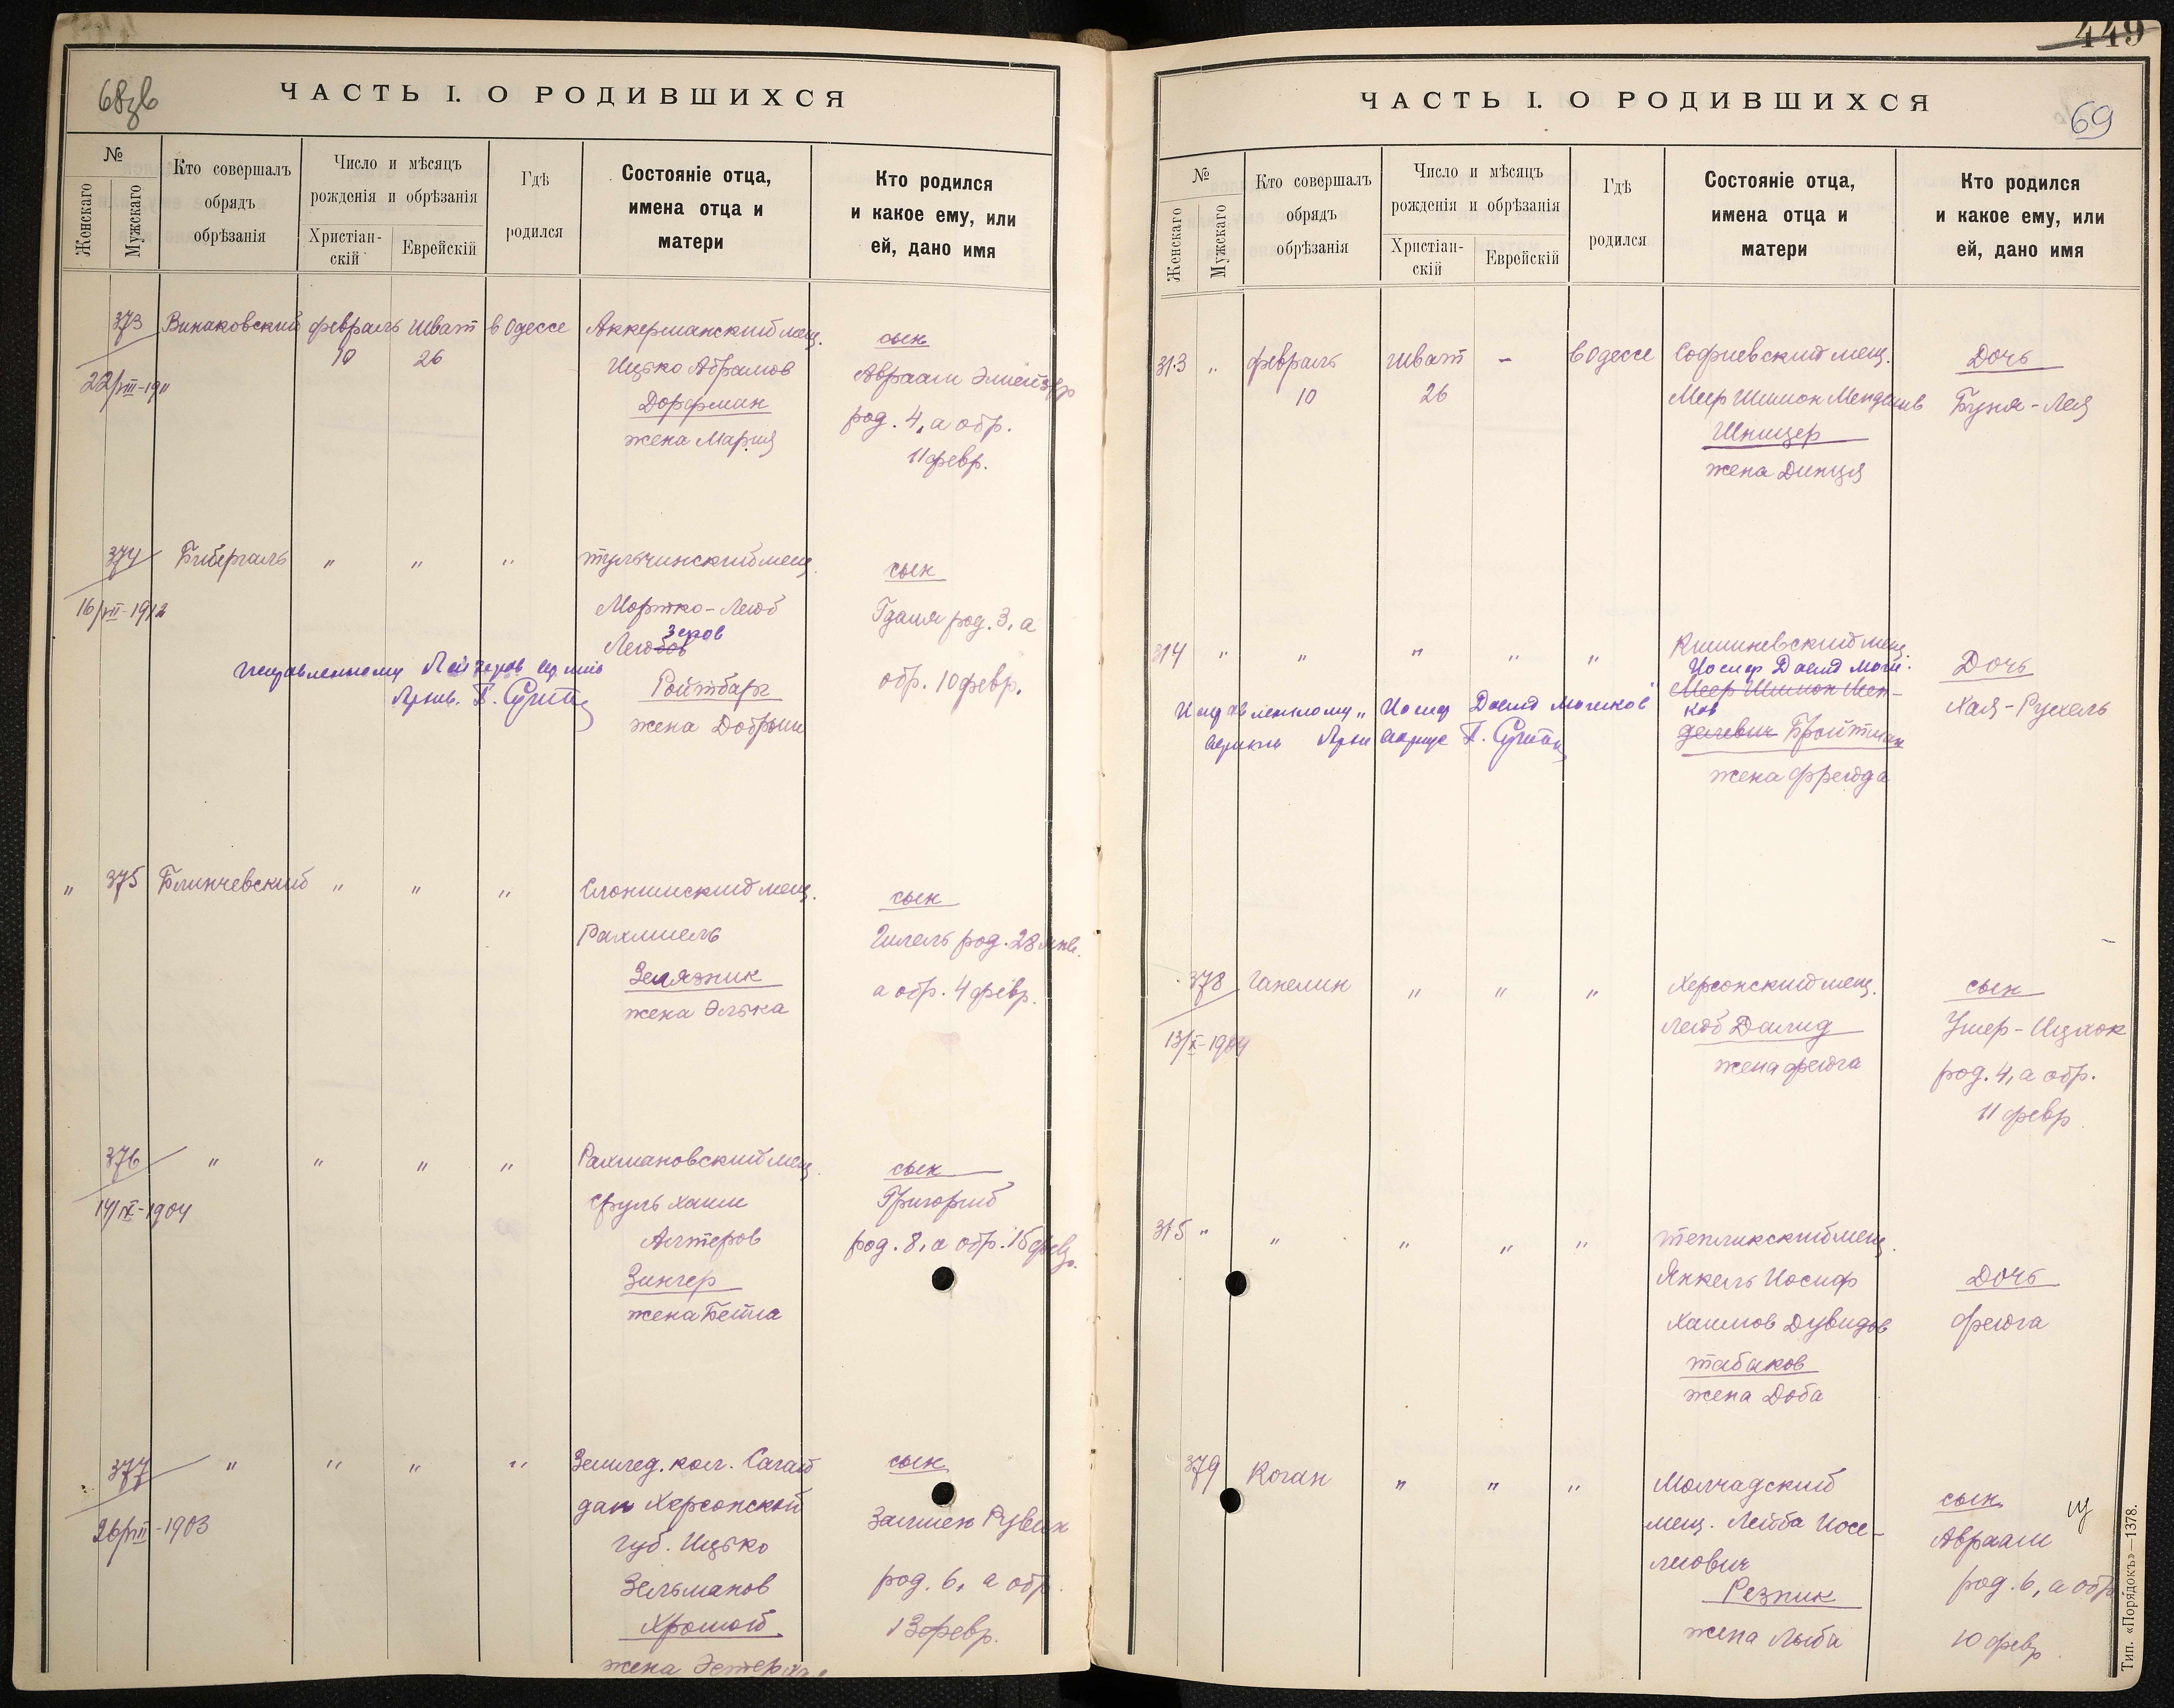 68зв
ЧАСТЬ I. О РОДИВШИХСЯ
№
Женскаго
Мужскаго
Кто совершалъ
обрядъ
обрѣзанія
Число и мѣсяцъ
рожденія и обрѣзанія
Христіан-
скій
Еврейскій
Гдѣ
родился
Состояніе отца,
имена отца и
матери
Кто родился
и какое ему, или
ей, дано имя
373 Винаковский февраль Шват в Одессе Аккерманский мещ. сын
22/VIII-1911 10 26 Ицько Абрамов Авраам Элиейзер
Дорфман род. 4, а обр.
жена Мария 11 февр.
374 Бибергаль " " " тульчинский мещ. сын
16/VII-1912 Мортко-Лейб Гдаля род. 3, а
Лейбов зеров
Исправленному Лейзеров верить
Ройтбарг обр. 10 февр.
жена Добрыш
" 375 Блинчевский " " " Слонимский мещ. сын
Рахмиель Гилель род. 28 янв.
Зелязник а обр. 4 февр.
жена Элька
376 " " " " Рахмановский мещ. сын
14/IX-1904 Сруль Хаим Григорий
Алтеров род. 8, а обр. 15 февр.
Зингер
жена Бейла
377 " " " " Землед. кол. Сагай сын
дак Херсонской Залмен Рувин
26/VIII-1903 губ. Ицько
Зельманов род. 6, а обр.
Хромой 13 февр.
жена Эстер
449
69
ЧАСТЬ I. О РОДИВШИХСЯ
№
Женскаго
Мужскаго
Кто совершалъ
обрядъ
обрѣзанія
Число и мѣсяцъ
рожденія и обрѣзанія
Христіан-
скій
Еврейскій
Гдѣ
родился
Состояніе отца,
имена отца и
матери
Кто родился
и какое ему, или
ей, дано имя
313 " февраль Шват - в Одессе Софиевский мещ. Дочь
10 26 Меер Шимон Менделив Буня-Лея
Шницер
жена Динця
314 " " " " " Кишиневский мещ.
Иосиф Давид Мош. Дочь
Меер Шимон Мен-
ков Хая-Рухель
Исправленному "Иосиф Давид Мошков"
делевич Бройтман
жена Фрейда
378 Ганелин " " " Херсонский мещ. сын
Лейб Давид Ушер-Ицхок
13/X-1904 жена Фейга род. 4, а обр.
11 февр
315 " " " " " тепликский мещ.
Янкель Иосиф Дочь
Хаимов Дувидов Фейга
табаков
жена Доба
379 Коган " " " Молчадский сын
мещ. Лейба Иосе- Авраам
лиович род. 6, а обр
Резник
жена Лыба 10 февр
Тип. «Порядокъ»—1378.